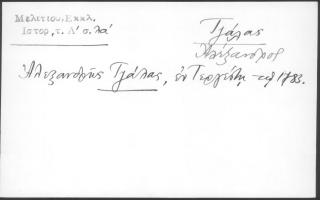 Μελετίου, Εκκλ.
Ιστορ, τ. Α' σ. λά
Τζάλας
Αλέξανδρος
Αλέξανδρος Τζάλας, εν Τεργέστη 1783.